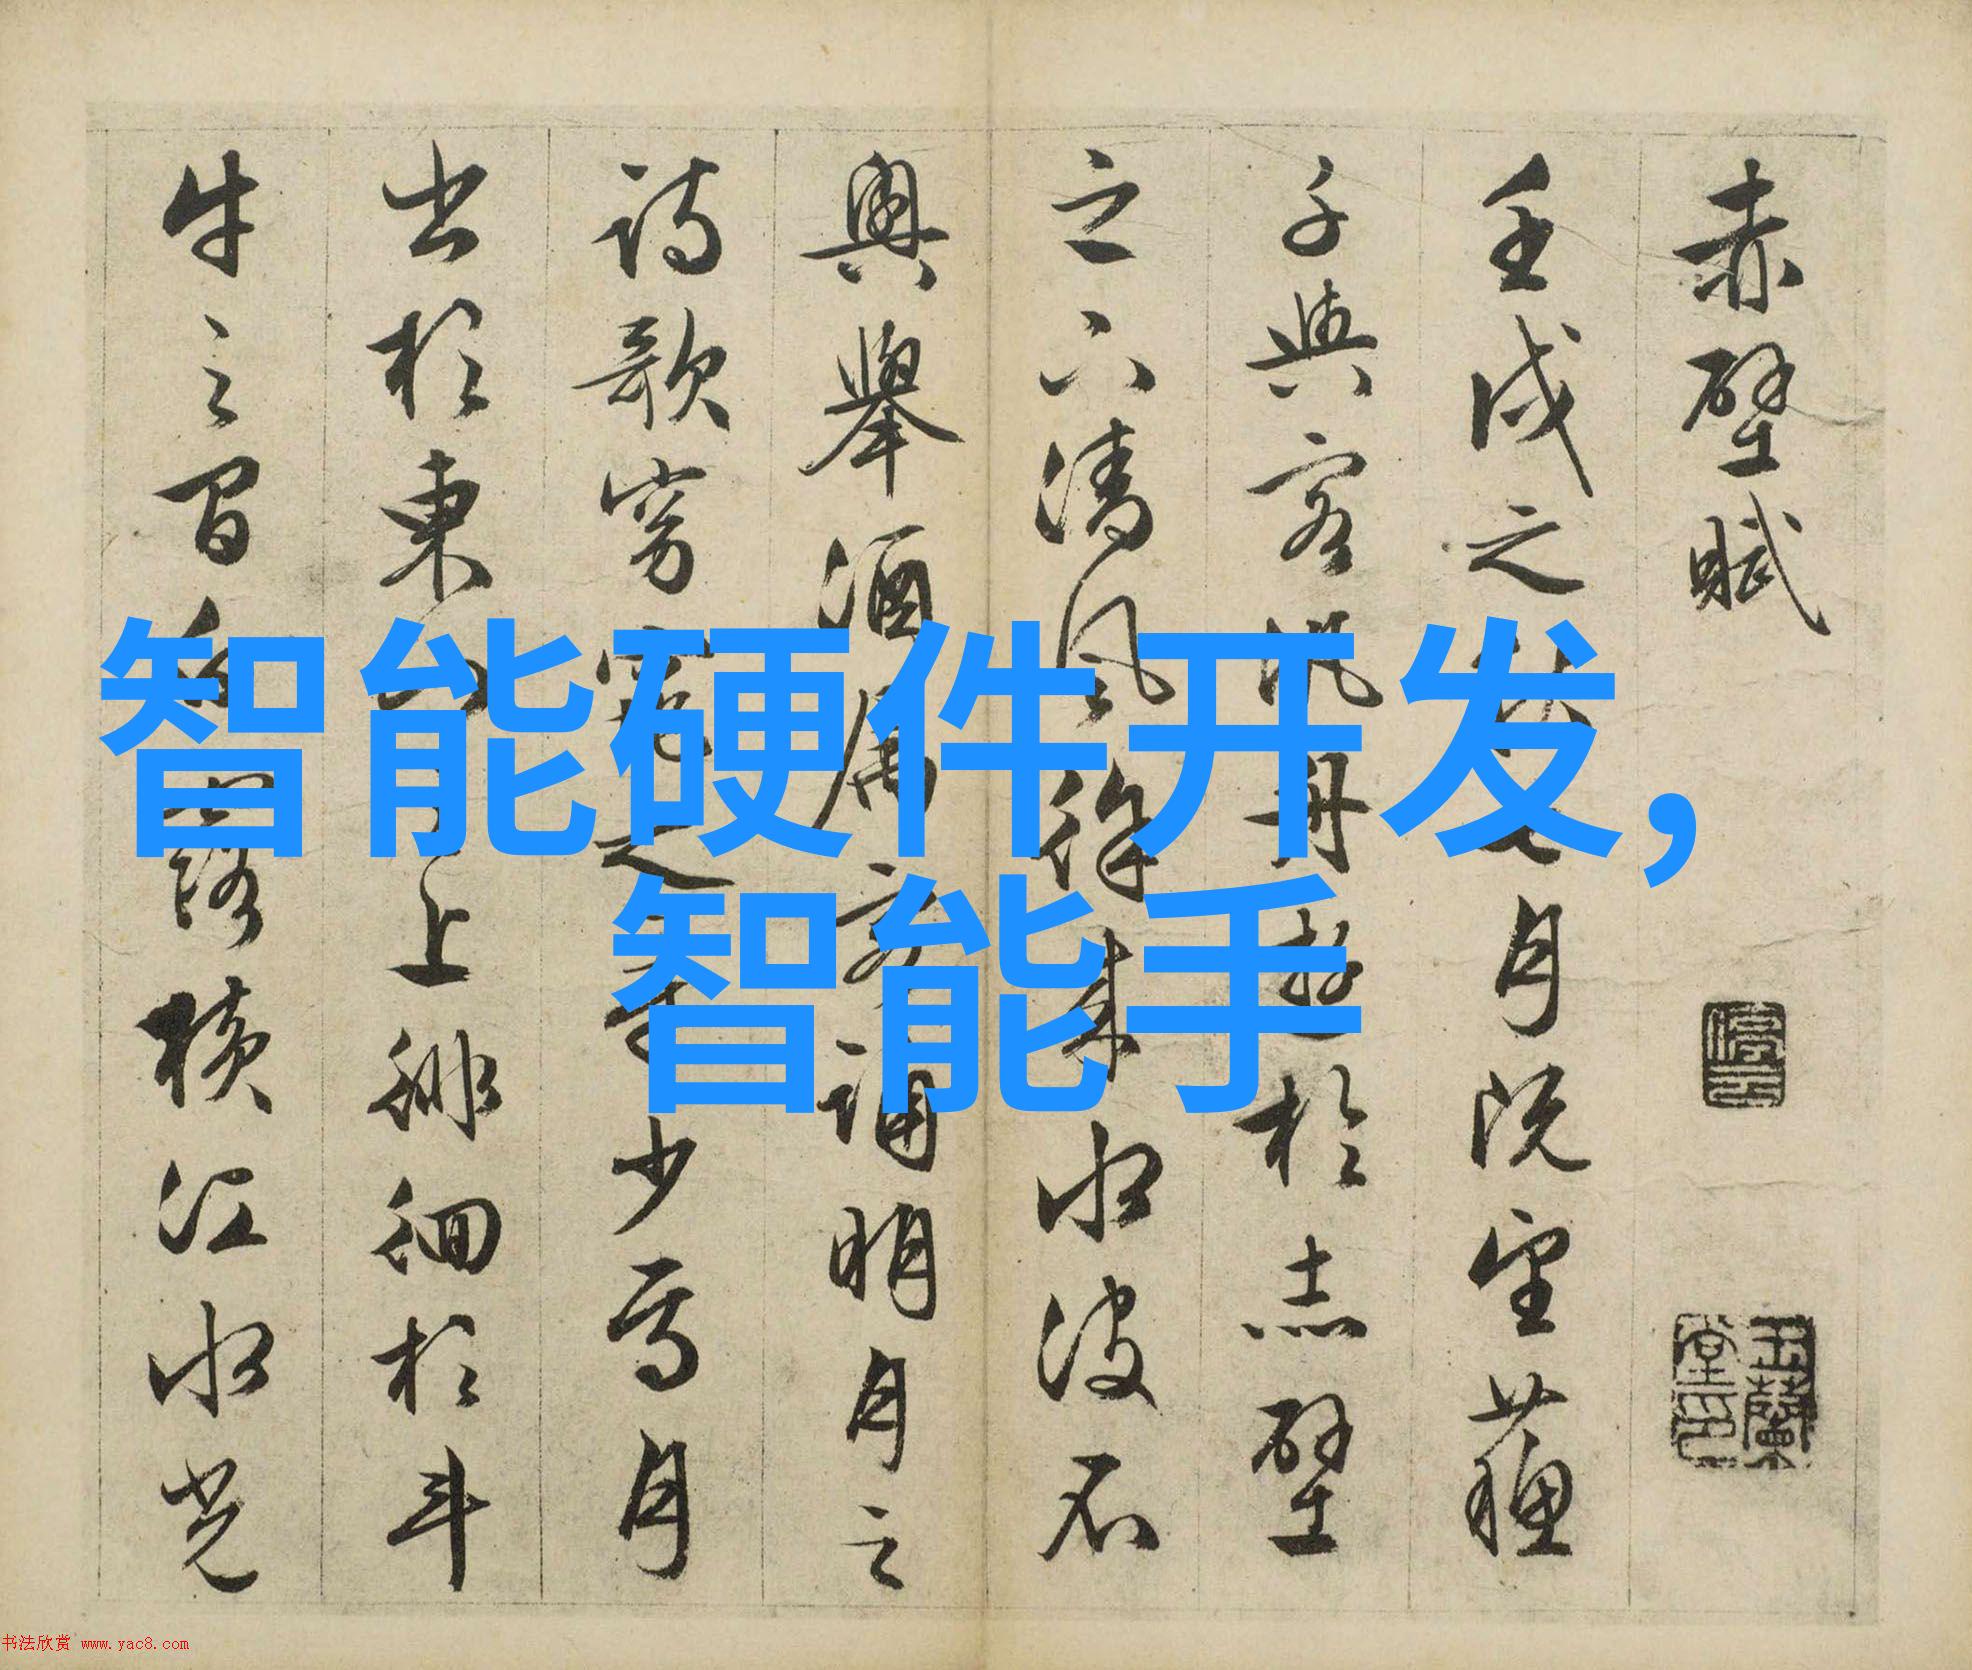 智能硬件开发,
智能手
赤壁賦
壬戌之秋七月既望蘇
子與客泛舟遊於赤壁
之下清風徐來水波不
興舉酒屬客誦明月之
詩歌窈窕之章少焉月
出於東山之上徘徊於斗
牛之間白露橫江水光
停雲
玉蘭堂印
书法欣赏 www.yac8.com